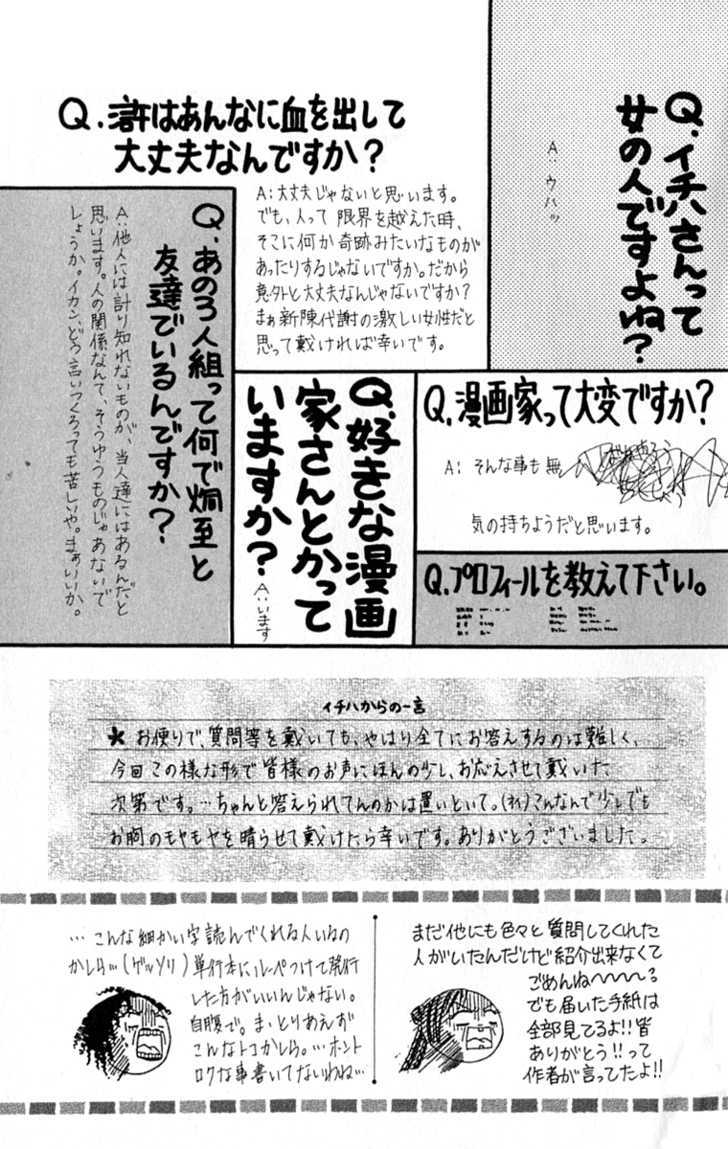 Q.イチハさんって
女の人ですよね?
A:ウハッ
Q.滸はあんなに血を出して
大丈夫なんですか?
A:大丈夫じゃないと思います。
でも、人って限界を越えた時、
そこに何か奇跡みたいなものが
あったりするじゃないですか。だから
意外と大丈夫なんじゃないですか?
まぁ新陳代謝の激しい女性だと
思って戴ければ幸いです。
Q.あの3人組って何で炯至と
友達でいるんですか?
A:他人には計り知れないものが、当人達にはあるんだと
思います。人の関係なんて、そうゆうものじゃあないで
しょうか。イカン、どう言いつくろっても苦しいや。まぁいいか。
Q.漫画家って大変ですか?
A:そんな事も無
気の持ちようだと思います。
Q.好きな漫画
家さんとかって
いますか?
A:います
Q.プロフィールを教えて下さい。
イチハからの一言
★お便りで、質問等を戴いても、やはり全てにお答えするのは難しく、
今回この様な形で皆様のお声にほんの少し、お応えさせて戴いた
次第です。…ちゃんと答えられてんのかは置いといて。(ネィ)こんなんで少しでも
お胸のモヤモヤを晴らせて戴けたら幸いです。ありがとうございました。
まだ他にも色々と質問してくれた
人がいたんだけど紹介出来なくて
ごめんね〜〜〜〜?
でも届いた手紙は
全部見てるよ!!皆
ありがとう!!って
作者が言ってたよ!!
…こんな細かい字読んでくれる人いるの
かしら…(ゲッソリ)単行本にルーペつけて発行
した方がいいんじゃない。
自腹で。ま、とりあえず
こんなトコかしら。…ホント
ロクな事書いてないわね…